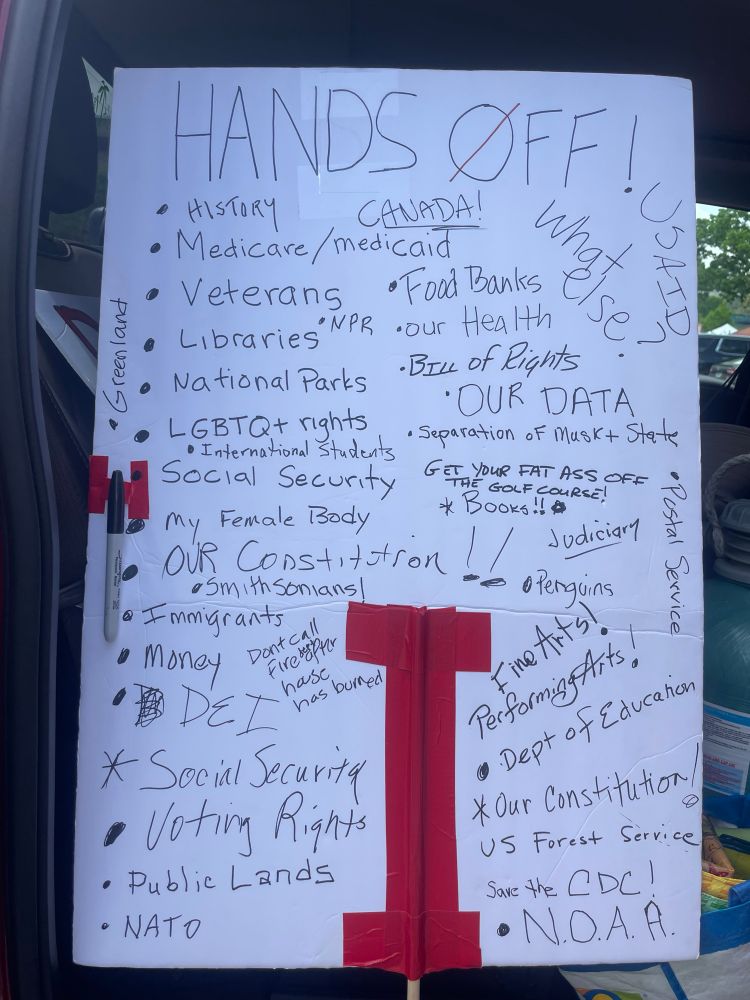 HANDS OFF!
• HISTORY
CANADA!
USAID
What
else?
• Medicare/medicaid
• Veterans
• Food Banks
• Libraries
• NPR
• our Health
• Greenland
• National Parks
• Bill of Rights
• OUR DATA
• LGBTQ+ rights
• International Students
• Separation of Musk + State
• Social Security
GET YOUR FAT ASS OFF
THE GOLF COURSE!
* BOOKS!!
• Postal Service
• My Female Body
Judiciary
• OUR Constitution!!
• Smithsonians!
• Penguins
• Immigrants
Dont call
Fire dept after
house
has burned
• Money
• DEI
Fine Arts!
Performing Arts!
• Dept of Education
* Social Security
* Our Constitution!
• Voting Rights
US Forest Service
• Public Lands
Save the CDC!
• NATO
• N.O.A.A.